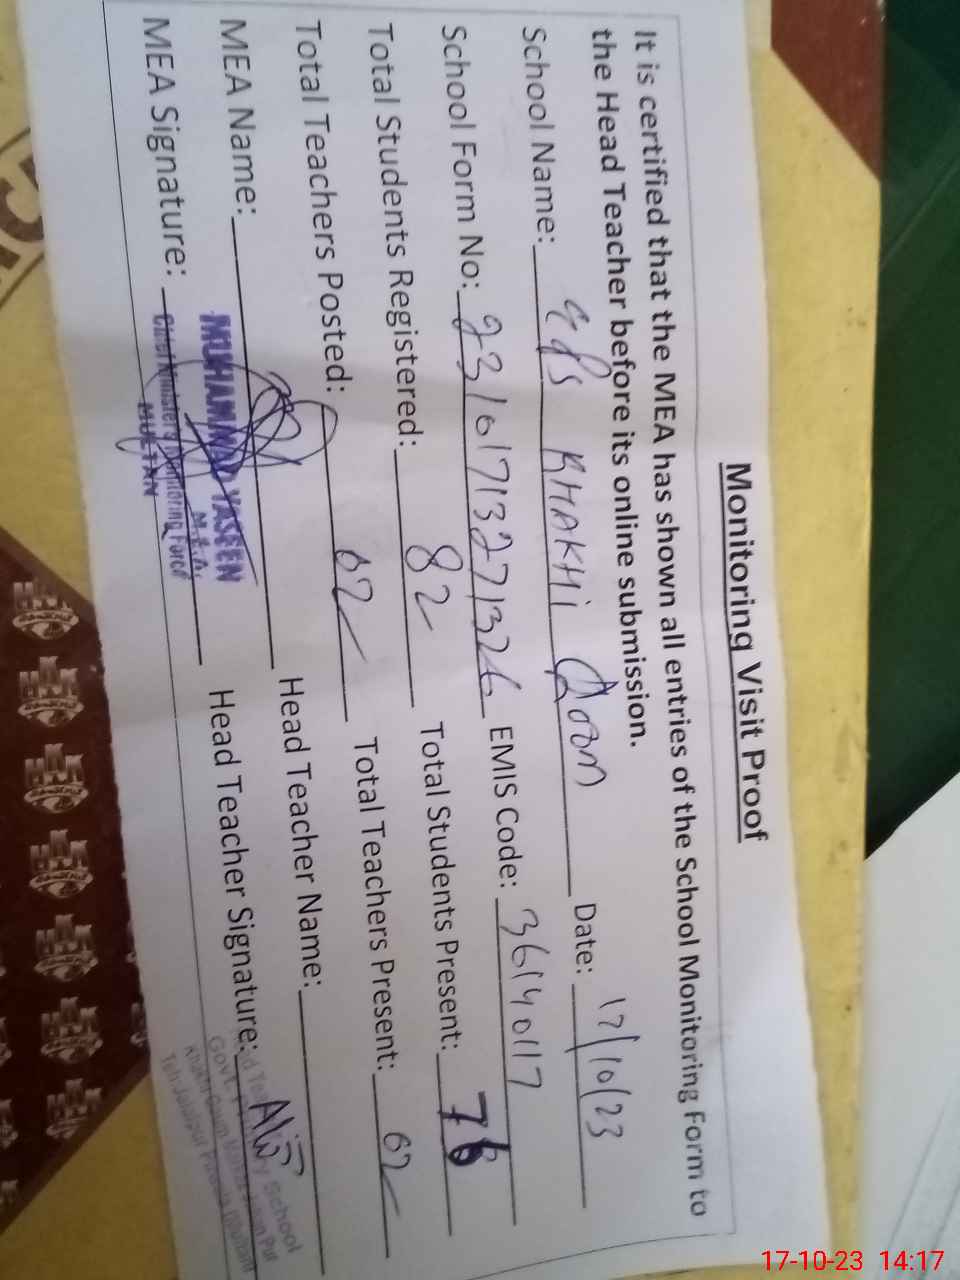 Monitoring Visit Proof
It is certified that the MEA has shown all entries of the School Monitoring Form to
the Head Teacher before its online submission.
School Name: GPS KHAKHI Qoom Date: 17/10/23
School Form No: 23101713271326 EMIS Code: 36140117
Total Students Registered: 82 Total Students Present: 76
Total Teachers Posted: 02 Total Teachers Present: 02
MEA Name: Head Teacher Name:
MEA Signature: Head Teacher Signature:
MUHAMMAD YASEEN
M.E.A
Chief Minister's Monitoring Force
MULTAN
School
17-10-23 14:17